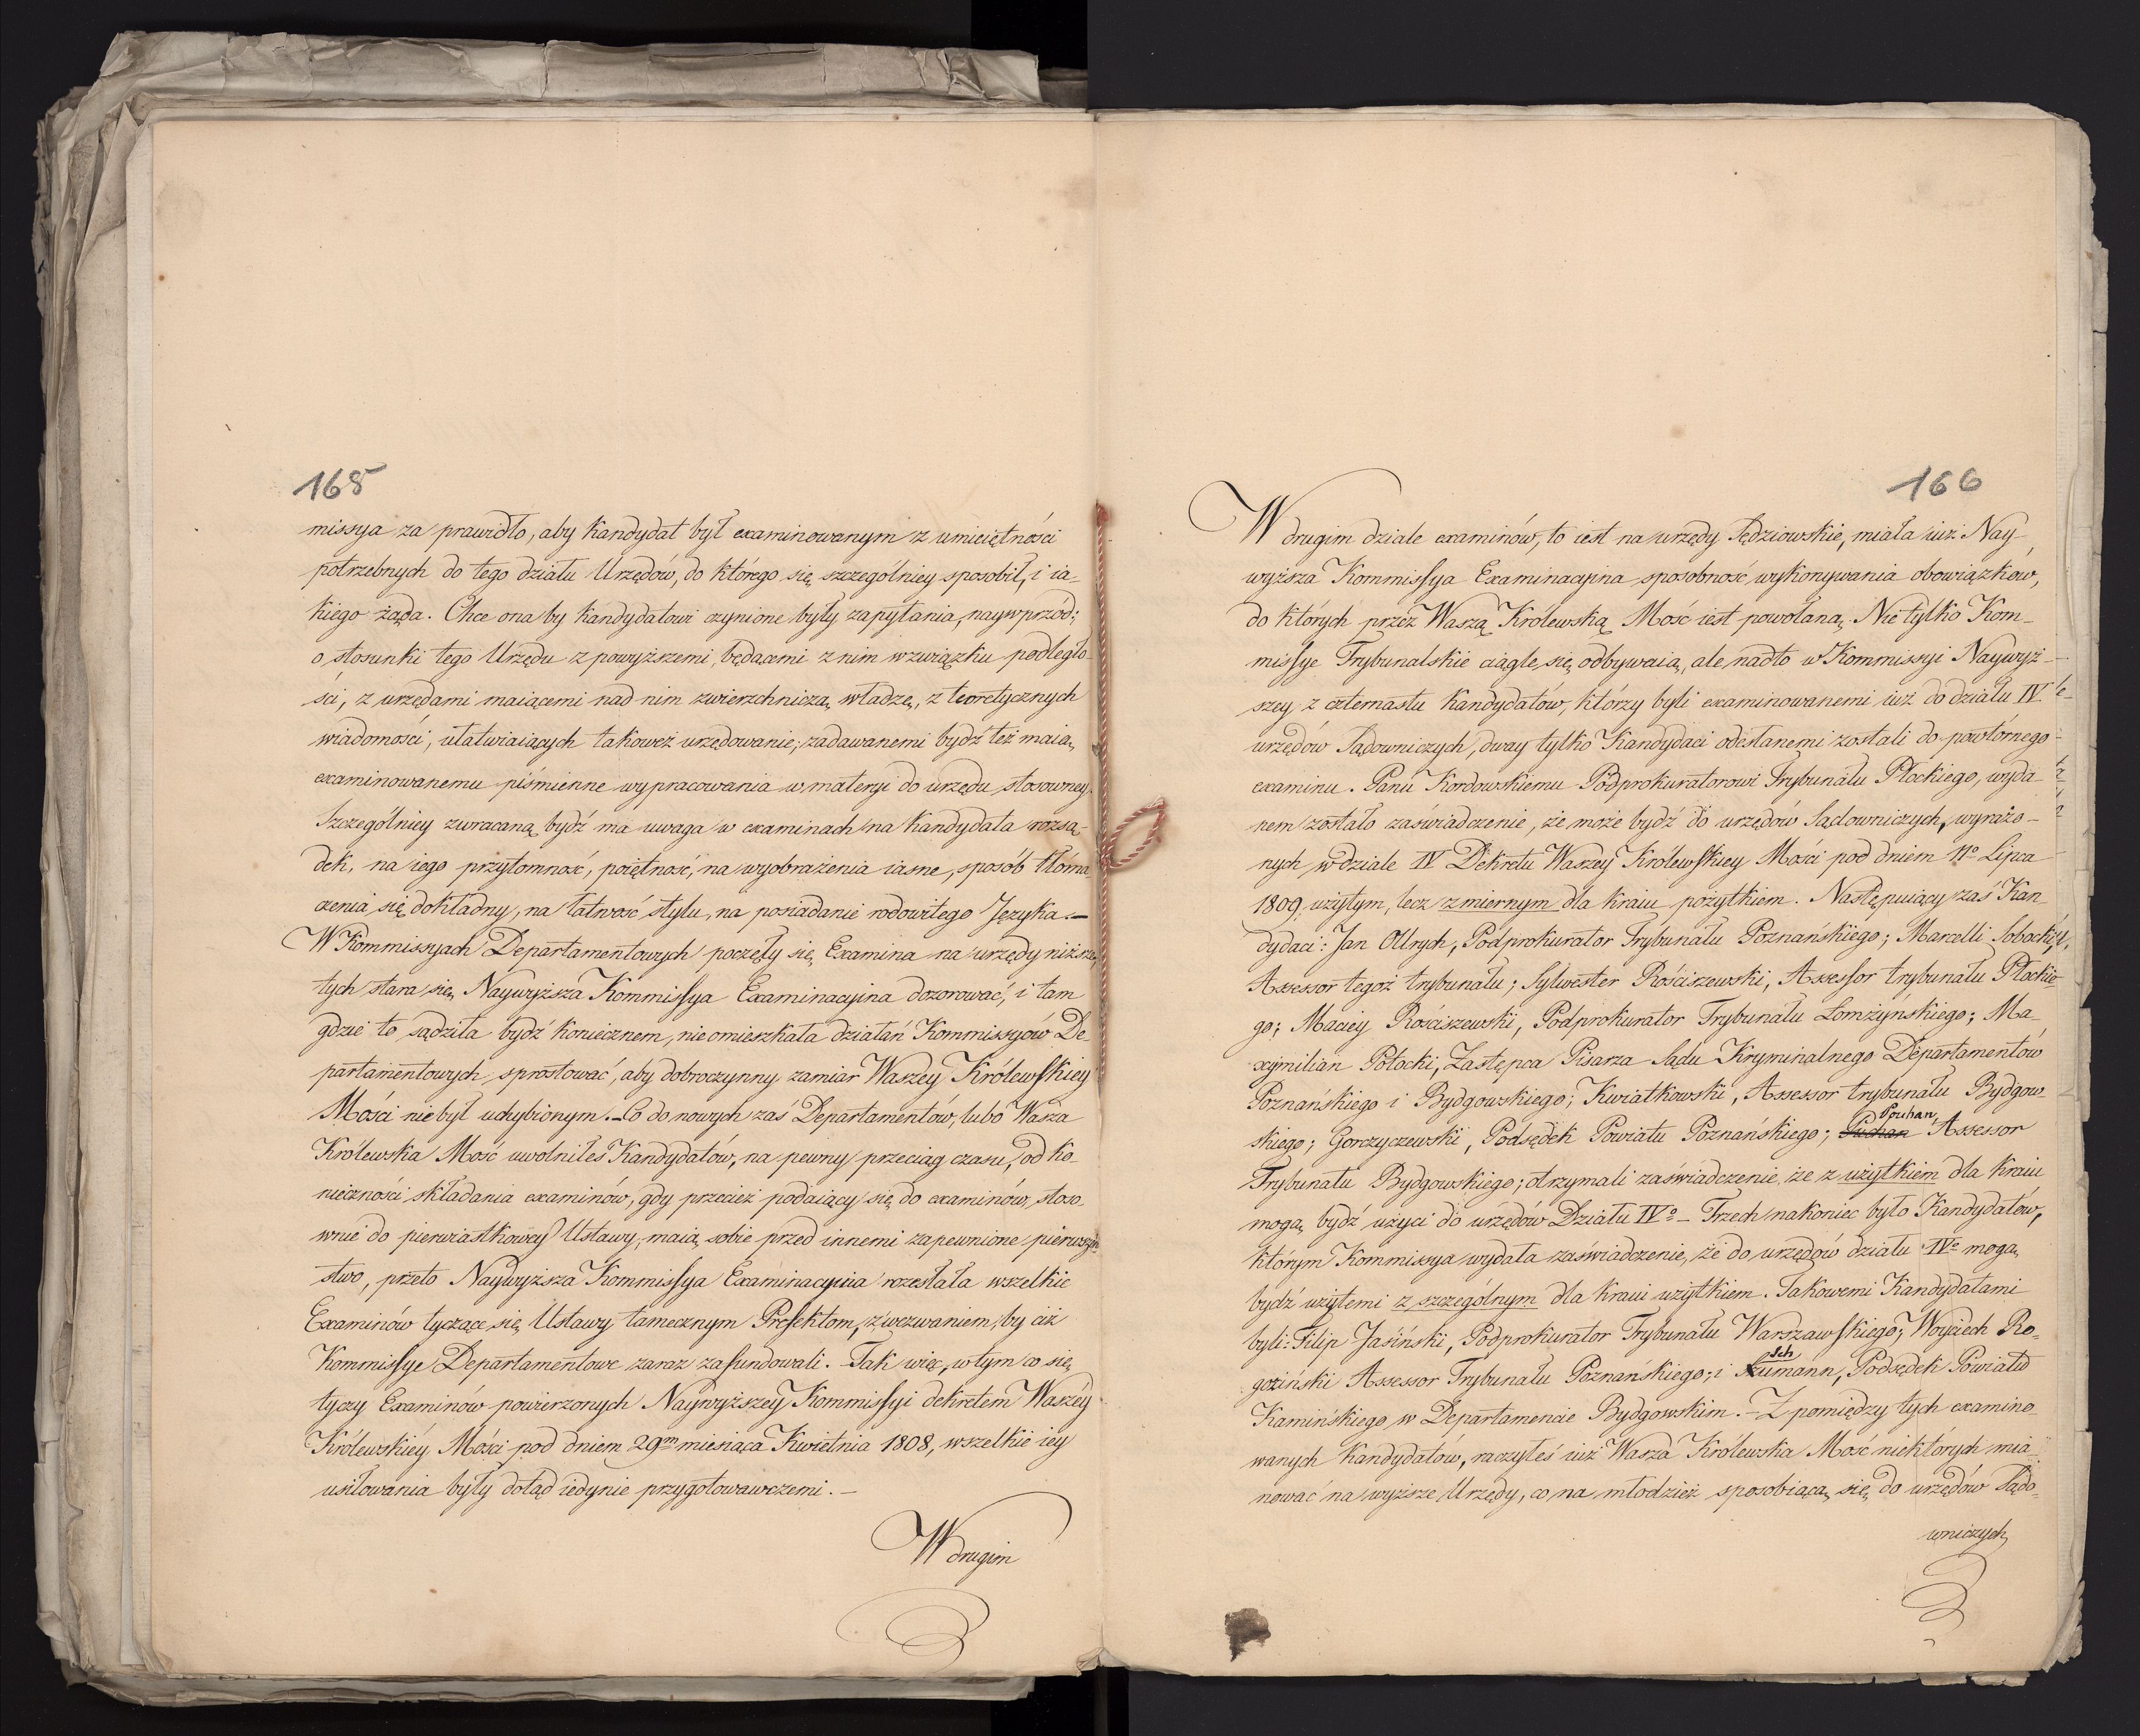 165
missya za prawidło, aby kandydat był examinowanym z umieiętności
potrzebnych do tego działu Urzędów, do którego się szczególniey sposobił, i ia-
kiego żąda. Chce ona by kandydatowi czynione były zapytania, naywprzód:
o stosunki tego Urzędu z powyższemi, będącemi z nim w związku podległo-
ści, z urzędami maiącemi nad nim zwierzchniczą władzę, z teoretycznych
wiadomości, ułatwiaiących takoweż urzędowanie; zadawanemi bydź też maią
examinowanemu piśmienne wypracowania w materyi do urzędu stosowney.
Szczególniey zwracaną bydź ma uwaga w examinach na kandydata rozsą-
dek, na iego przytomność, poiętność, na wyobrażenia iasne, sposób tłóma-
czenia się dokładny, na łatwość stylu, na posiadanie rodowitego Języka. —
W Kommissyach Departamentowych poczęły się Examina na urzędy niższe,
tych stara się Naywyższa Kommissya Examinacyina dozorować, i tam
gdzie to sądziła bydź koniecznem, nieomieszkała działań Kommissyów De-
partamentowych sprostować, aby dobroczynny zamiar Waszey Królewskiey
Mości nie był uchybionym. — Co do nowych zaś Departamentów, lubo Wasza
Królewska Mość uwolniłeś Kandydatów, na pewny przeciąg czasu, od ko-
nieczności składania examinów, gdy przecież podaiący się do examinów, stoso-
wnie do pierwiastkowey Ustawy, maią sobie przed innemi zapewnione pierwszeń-
stwo, przeto Naywyższa Kommissya Examinacyina rozesłała wszelkie
Examinów tyczące się Ustawy tamecznym Prefektom, z wezwaniem, by ciż
Kommissye Departamentowe zaraz zafundowali. — Tak więc, w tym co się
tyczy Examinów powierzonych Naywyższey Kommissyi dekretem Waszéy
Królewskiéy Mości pod dniem 29m miesiąca Kwietnia 1808, wszelkie iey
usiłowania były dotąd iedynie przygotowawczemi. —
W drugim
166
W drugim dziale examinów, to iest na urzędy Sędziowskie, miała iuż Nay-
wyższa Kommissya Examinacyina sposobność wykonywania obowiązków,
do których przez Waszą Królewską Mość iest powołaną. Nie tylko Kom-
missye Trybunalskie ciągle się odbywaią, ale nadto w Kommissyi Naywyż-
szey z czternastu Kandydatów, którzy byli examinowanemi iuż do działu IV
urzędów Sądowniczych, dway tylko Kandydaci odesłanemi zostali do powtórnego
examinu. Panu Kordowskiemu Podprokuratorowi Trybunału Płockiego, wyda-
nem zostało zaświadczenie, że może bydź do urzędów Sądowniczych, wyrażo-
nych w dziale IV Dekretu Waszey Królewskiey Mości pod dniem 11o Lipca
1809, użytym, lecz z miernym dla kraiu pożytkiem. Następuiący zaś Kan-
dydaci: Jan Ollrych, Podprokurator Trybunału Poznańskiego; Marcelli Sobocki,
Assessor tegoż trybunału; Sylwester Rościszewski, Assessor trybunału Płockie-
go; Maciey Rościszewski, Podprokurator Trybunału Łomżyńskiego; Ma-
xymilian Potocki, Zastępca Pisarza Sądu Kryminalnego Departamentów
Poznańskiego i Bydgowskiego; Kwiatkowski, Assessor trybunału Bydgow-
skiego; Gorczyczewski, Podsędek Powiatu Poznańskiego; Puchan Pouhan, Assessor
Trybunału Bydgowskiego; otrzymali zaświadczenie, że z użytkiem dla kraiu
mogą bydź użyci do urzędów Działu IVo — Trzech nakoniec było Kandydatów,
którym Kommissya wydała zaświadczenie, że do urzędów działu IVo mogą
bydź użytemi z szczególnym dla kraiu użytkiem. Takowemi Kandydatami
byli: Filip Jasiński, Podprokurator Trybunału Warszawskiego; Woyciech Ro-
goziński Assessor Trybunału Poznańskiego; i Schumann, Podsędek Powiatu
Kamińskiego w Departamencie Bydgowskim. — Z pomiędzy tych examino-
wanych Kandydatów, raczyłeś iuż Wasza Królewska Mość niektórych mia-
nować na wyższe Urzędy, co na młodzież sposobiącą się do urzędów Sądo-
wniczych